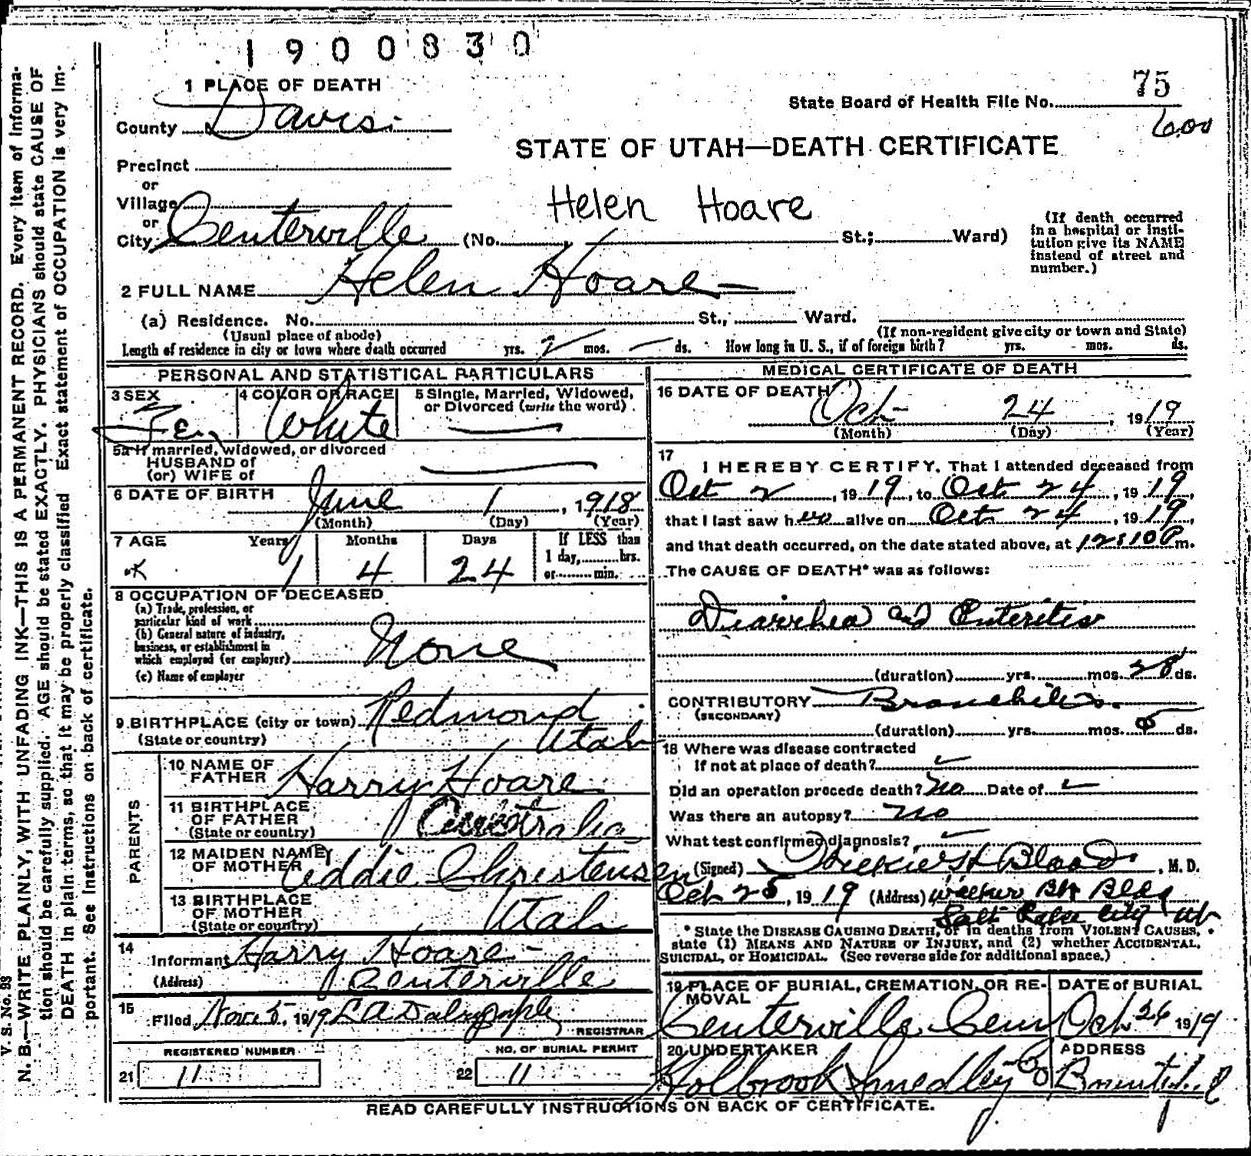 1900830
1 PLACE OF DEATH
75
State Board of Health File No.
600
County Davis.
STATE OF UTAH—DEATH CERTIFICATE
Precinct
or
Village
Helen Hoare
or
City Centerville (No. St.; Ward)
(If death occurred
in a hospital or insti-
tution give its NAME
instead of street and
number.)
2 FULL NAME Helen Hoare
(a) Residence. No. St., Ward.
(Usual place of abode)
(If non-resident give city or town and State)
Length of residence in city or town where death occurred yrs. 2 mos. — ds. How long in U. S., if of foreign birth? yrs. mos. ds.
PERSONAL AND STATISTICAL PARTICULARS
3 SEX
Fe.
4 COLOR OR RACE
White
5 Single, Married, Widowed,
or Divorced (write the word)
5a If married, widowed, or divorced
HUSBAND of
(or) WIFE of
6 DATE OF BIRTH
June 1, 1918
(Month) (Day) (Year)
7 AGE Years Months Days
1 4 24
If LESS than
1 day, hrs.
or min.
8 OCCUPATION OF DECEASED
(a) Trade, profession, or
particular kind of work
(b) General nature of industry,
business, or establishment in
which employed (or employer)
None
(c) Name of employer
9 BIRTHPLACE (city or town) Redmond
(State or country) Utah
PARENTS
10 NAME OF
FATHER Harry Hoare
11 BIRTHPLACE
OF FATHER
(State or country) Australia
12 MAIDEN NAME
OF MOTHER Addie Christensen
13 BIRTHPLACE
OF MOTHER
(State or country) Utah
14
Informant Harry Hoare
(Address) Centerville
15
Filed Nov. 5, 1919 L A Dalrymple
REGISTRAR
REGISTERED NUMBER
21 11
NO. OF BURIAL PERMIT
22 11
MEDICAL CERTIFICATE OF DEATH
16 DATE OF DEATH
Oct 24, 1919
(Month) (Day) (Year)
17
I HEREBY CERTIFY, That I attended deceased from
Oct 2, 1919, to Oct 24, 1919,
that I last saw her alive on Oct 24, 1919,
and that death occurred, on the date stated above, at 12:10 P m.
The CAUSE OF DEATH* was as follows:
Diarrhea and Enteritis
(duration) yrs. mos. 28 ds.
CONTRIBUTORY Bronchitis.
(SECONDARY)
(duration) yrs. mos. 5 ds.
18 Where was disease contracted
If not at place of death?
Did an operation precede death? No Date of
Was there an autopsy? No
What test confirmed diagnosis?
(Signed) H Blood, M. D.
Oct 25, 1919 (Address) Walker Bk Bldg
Salt Lake City Ut
* State the DISEASE CAUSING DEATH, or in deaths from VIOLENT CAUSES,
state (1) MEANS AND NATURE OF INJURY, and (2) whether ACCIDENTAL,
SUICIDAL, or HOMICIDAL. (See reverse side for additional space.)
19 PLACE OF BURIAL, CREMATION, OR RE-
MOVAL
Centerville Cem
DATE of BURIAL
Oct 26 1919
20 UNDERTAKER
Holbrook Smedley Co
ADDRESS
Bountiful
READ CAREFULLY INSTRUCTIONS ON BACK OF CERTIFICATE.
V. S. No. 93
N. B.—WRITE PLAINLY, WITH UNFADING INK—THIS IS A PERMANENT RECORD. Every item of informa-
tion should be carefully supplied. AGE should be stated EXACTLY. PHYSICIANS should state CAUSE OF
DEATH in plain terms, so that it may be properly classified. Exact statement of OCCUPATION is very im-
portant. See instructions on back of certificate.